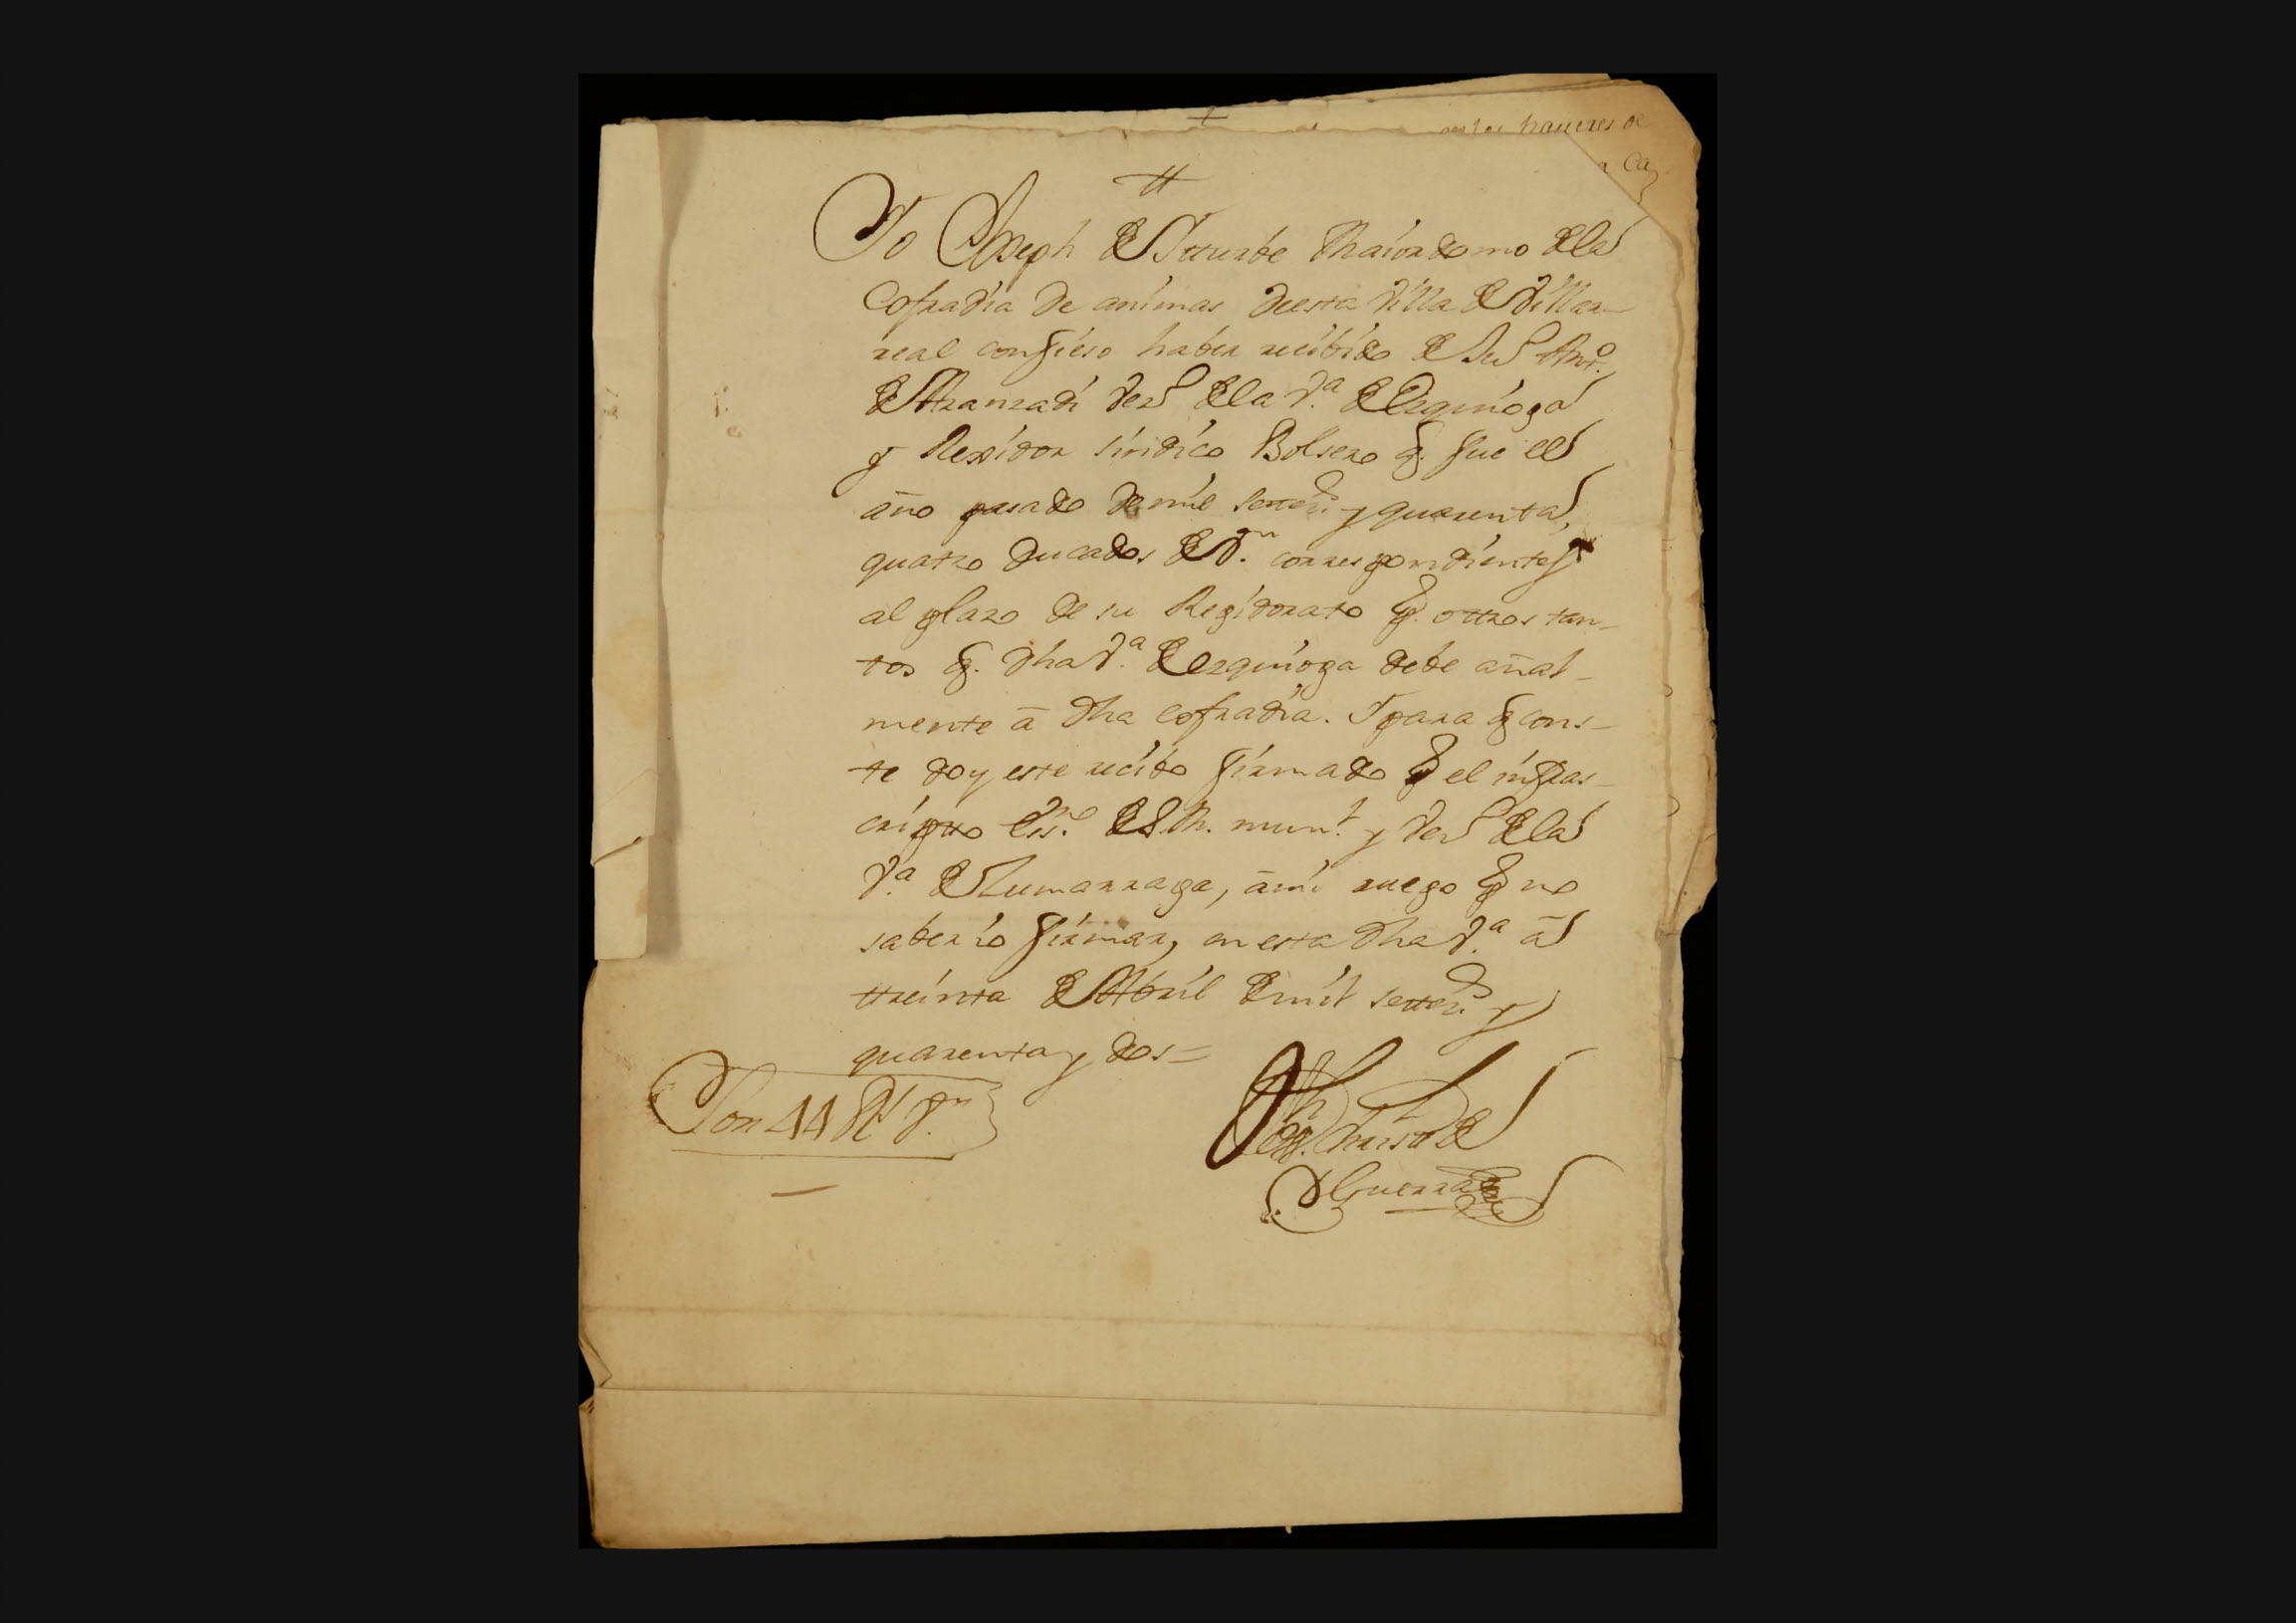 haueres de
Ca
Yo Joseph de Yturbe Maiordomo dela
Cofradia de animas deesta Villa de Villar-
real confieso haber recibido de Juº Antº
de Aranzadi vezº dela Vª. de Ezquioga
y Rexidor sindico Bolsero q. fue el
año pasado de mil settezs. y quarenta,
quatro ducados de Vn. correspondientes
al plazo de su Regidorato p. ottros tan-
tos q. dha Vª. de Ezquioga debe añal-
mente â dha cofradia. Y para q cons-
te doy este recibo firmado p el infras-
cripto Essº. de S.M. numl. y vezº dela
Vª. de Zumarraga, â mi ruego p no
saber io firmar, en esta dha Vª. â
ttreinta de Abril de mil settezs. y
quarenta y dos=
Son 44 Rs Vn.
Guerra